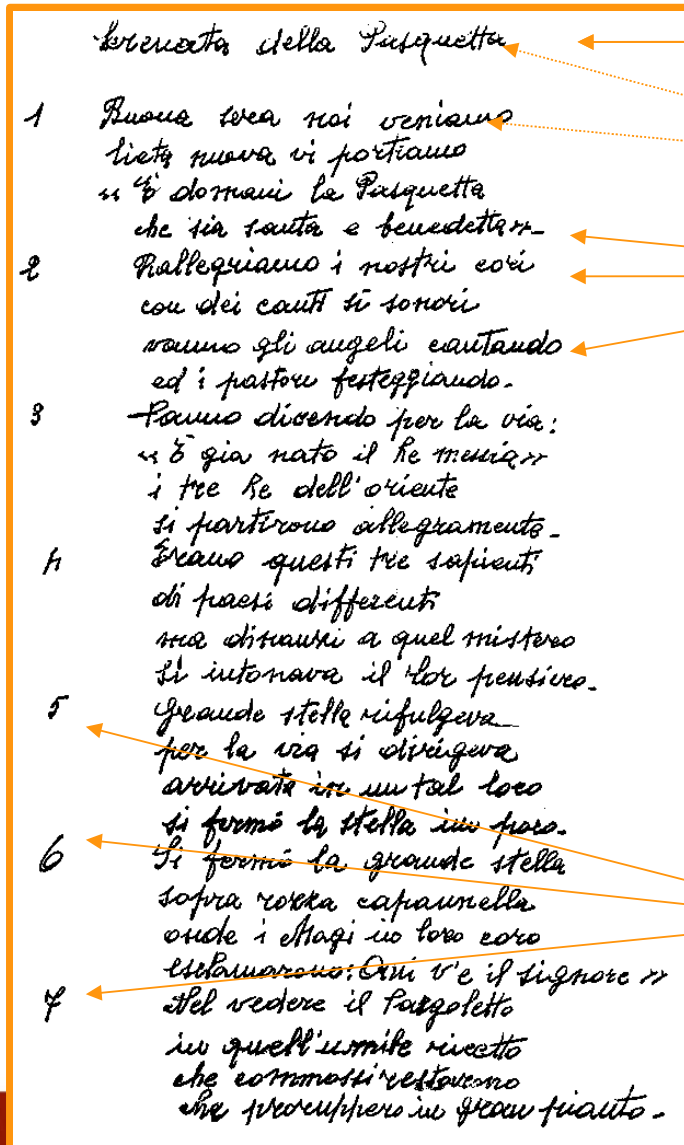 Serenata della Pasquetta
1 Buona sera noi veniamo
lieta nuova vi portiamo
« È domani la Pasquetta
che sia santa e benedetta»-
2 Rallegriamo i nostri cori
con dei canti sì sonori
vanno gli angeli cantando
ed i pastori festeggiando.
3 Vanno dicendo per la via:
« È gia nato il Re messia»
i tre Re dell'oriente
si partirono allegramente-
4 Erano questi tre sapienti
di paesi differenti
ma dinanzi a quel mistero
si intonava il lor pensiero.
5 Grande stella rifulgeva
per la via si dirigeva
arrivata in un tal loco
si fermó la stella un poco.
6 Si fermó la grande stella
sopra rozza capannella
onde i Magi in loro coro
esclamarono: Qui v'e il signore »
7 Nel vedere il Pargoletto
in quell'umile ricetto
che commossi restarono
che proruppero in gran pianto.